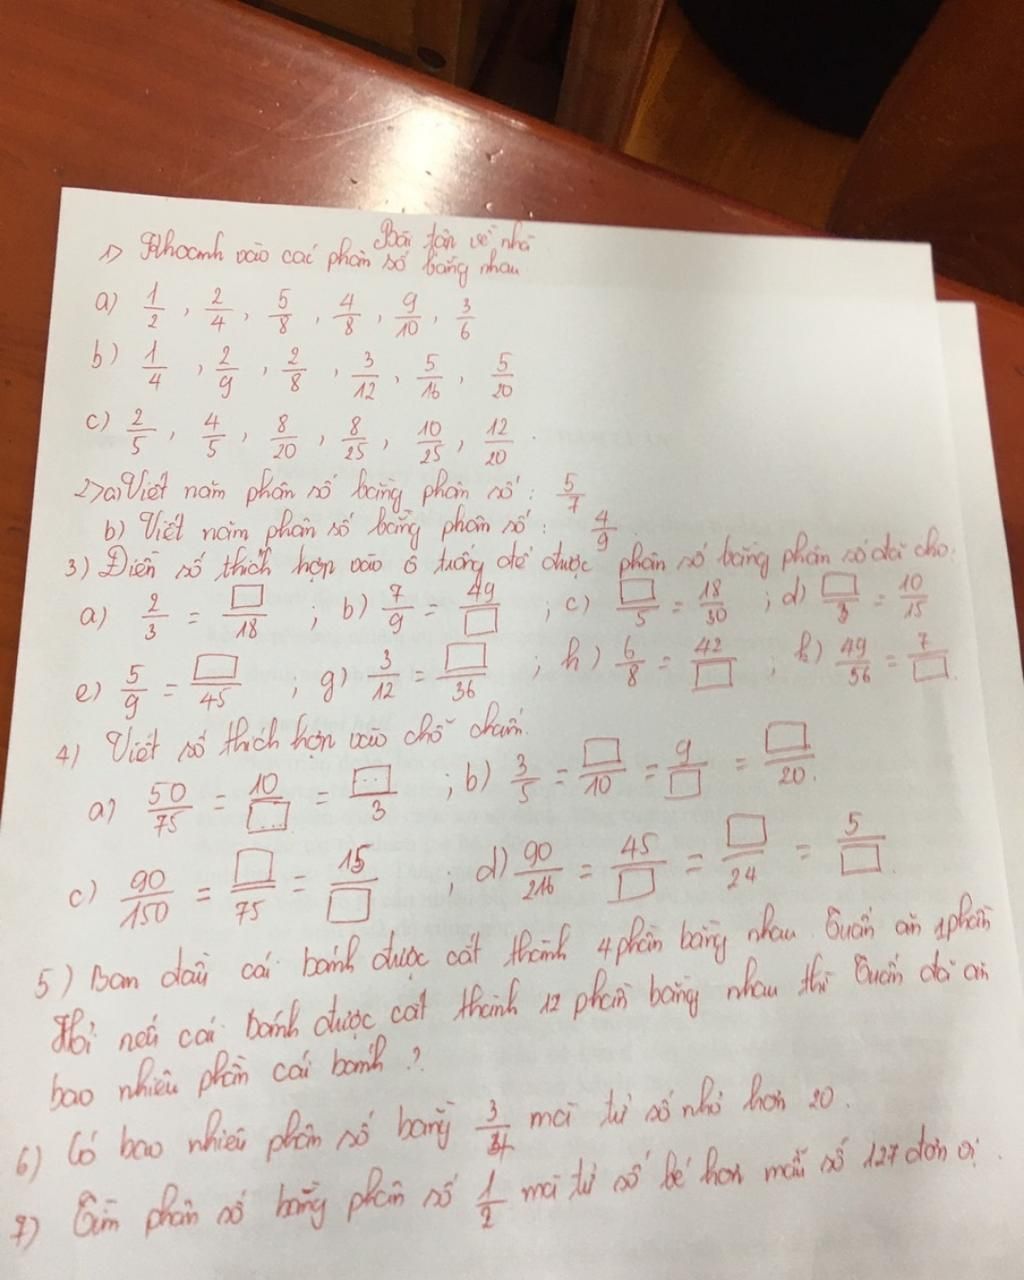 Bài tập về nhà
1) Khoanh vào các phân số bằng nhau
a) 1/2 , 2/4 , 5/8 , 4/8 , 9/10 , 3/6
b) 1/4 , 2/9 , 2/8 , 3/12 , 5/16 , 5/20
c) 2/5 , 4/5 , 8/20 , 8/25 , 10/25 , 12/20 .
2) a) Viết năm phân số bằng phân số : 5/7
b) Viết năm phân số bằng phân số : 4/9 .
3) Điền số thích hợp vào ô trống để được phân số bằng phân số đã cho.
a) 2/3 = □/18 ; b) 7/9 = 49/□ ; c) □/5 = 18/30 ; d) □/3 = 10/15
e) 5/9 = □/45 ; g) 3/12 = □/36 ; h) 6/8 = 42/□ ; k) 49/56 = 7/□ .
4) Viết số thích hợp vào chỗ chấm.
a) 50/75 = 10/□ = □/3 ; b) 3/5 = □/10 = 9/□ = □/20 .
c) 90/150 = □/75 = 15/□ ; d) 90/216 = 45/□ = □/24 = 5/□ .
5) Ban đầu cái bánh được cắt thành 4 phần bằng nhau. Tuấn ăn 1 phần
Hỏi nếu cái bánh được cắt thành 12 phần bằng nhau thì Tuấn đã ăn
bao nhiêu phần cái bánh ?
6) Có bao nhiêu phân số bằng 3/4 mà tử số nhỏ hơn 20 .
7) Tìm phân số bằng phân số 1/2 mà tử số bé hơn mẫu số 127 đơn vị .